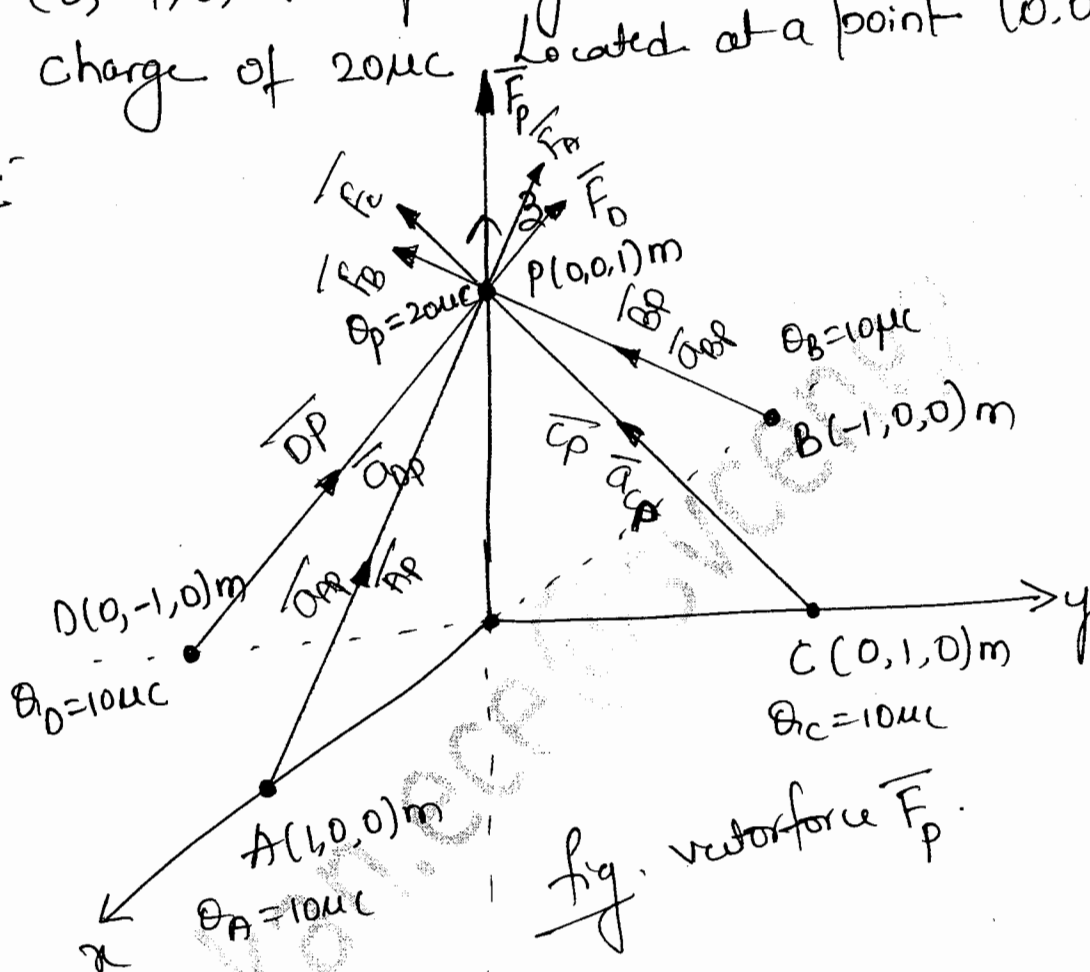 charge of 20μc Located at a point (0,0
F̅P
F̅A
F̅C
F̅D
F̅B
z
P(0,0,1)m
QP=20μc
B̅P̅
a̅BP
QB=10μc
B(-1,0,0)m
D̅P̅
a̅DP
C̅P̅
a̅CP
D(0,-1,0)m
a̅AP
A̅P̅
y
C(0,1,0)m
QD=10μc
QC=10μc
A(1,0,0)m
QA=10μc
x
fig. vectorforce F̅P.